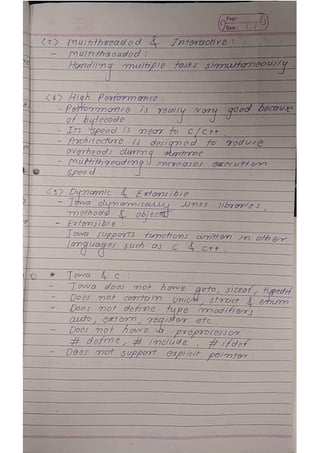 Page:
Date: / /
(7) Multithreaded & Interactive :
- Multithreaded :
Handling multiple tasks simultaneously
(8) High Performance :
- Performance is really very good because
of bytecode.
- Its speed is near to C/C++.
- Architecture is designed to reduce
overheads during runtime
- Multithreading increases execution
speed
(9) Dynamic & Extensible
- Java dynamically links libraries,
methods & objects
- Extensible
Java supports functions written in other
languages such as C & C++.
* Java & C :
- Java does not have goto, sizeof, typedef
- Does not contain union, struct & enum
- Does not define type modifiers
auto, extern, register etc.
- Does not have a preprocessor
# define, # include, # ifdef
- Does not support explicit pointer